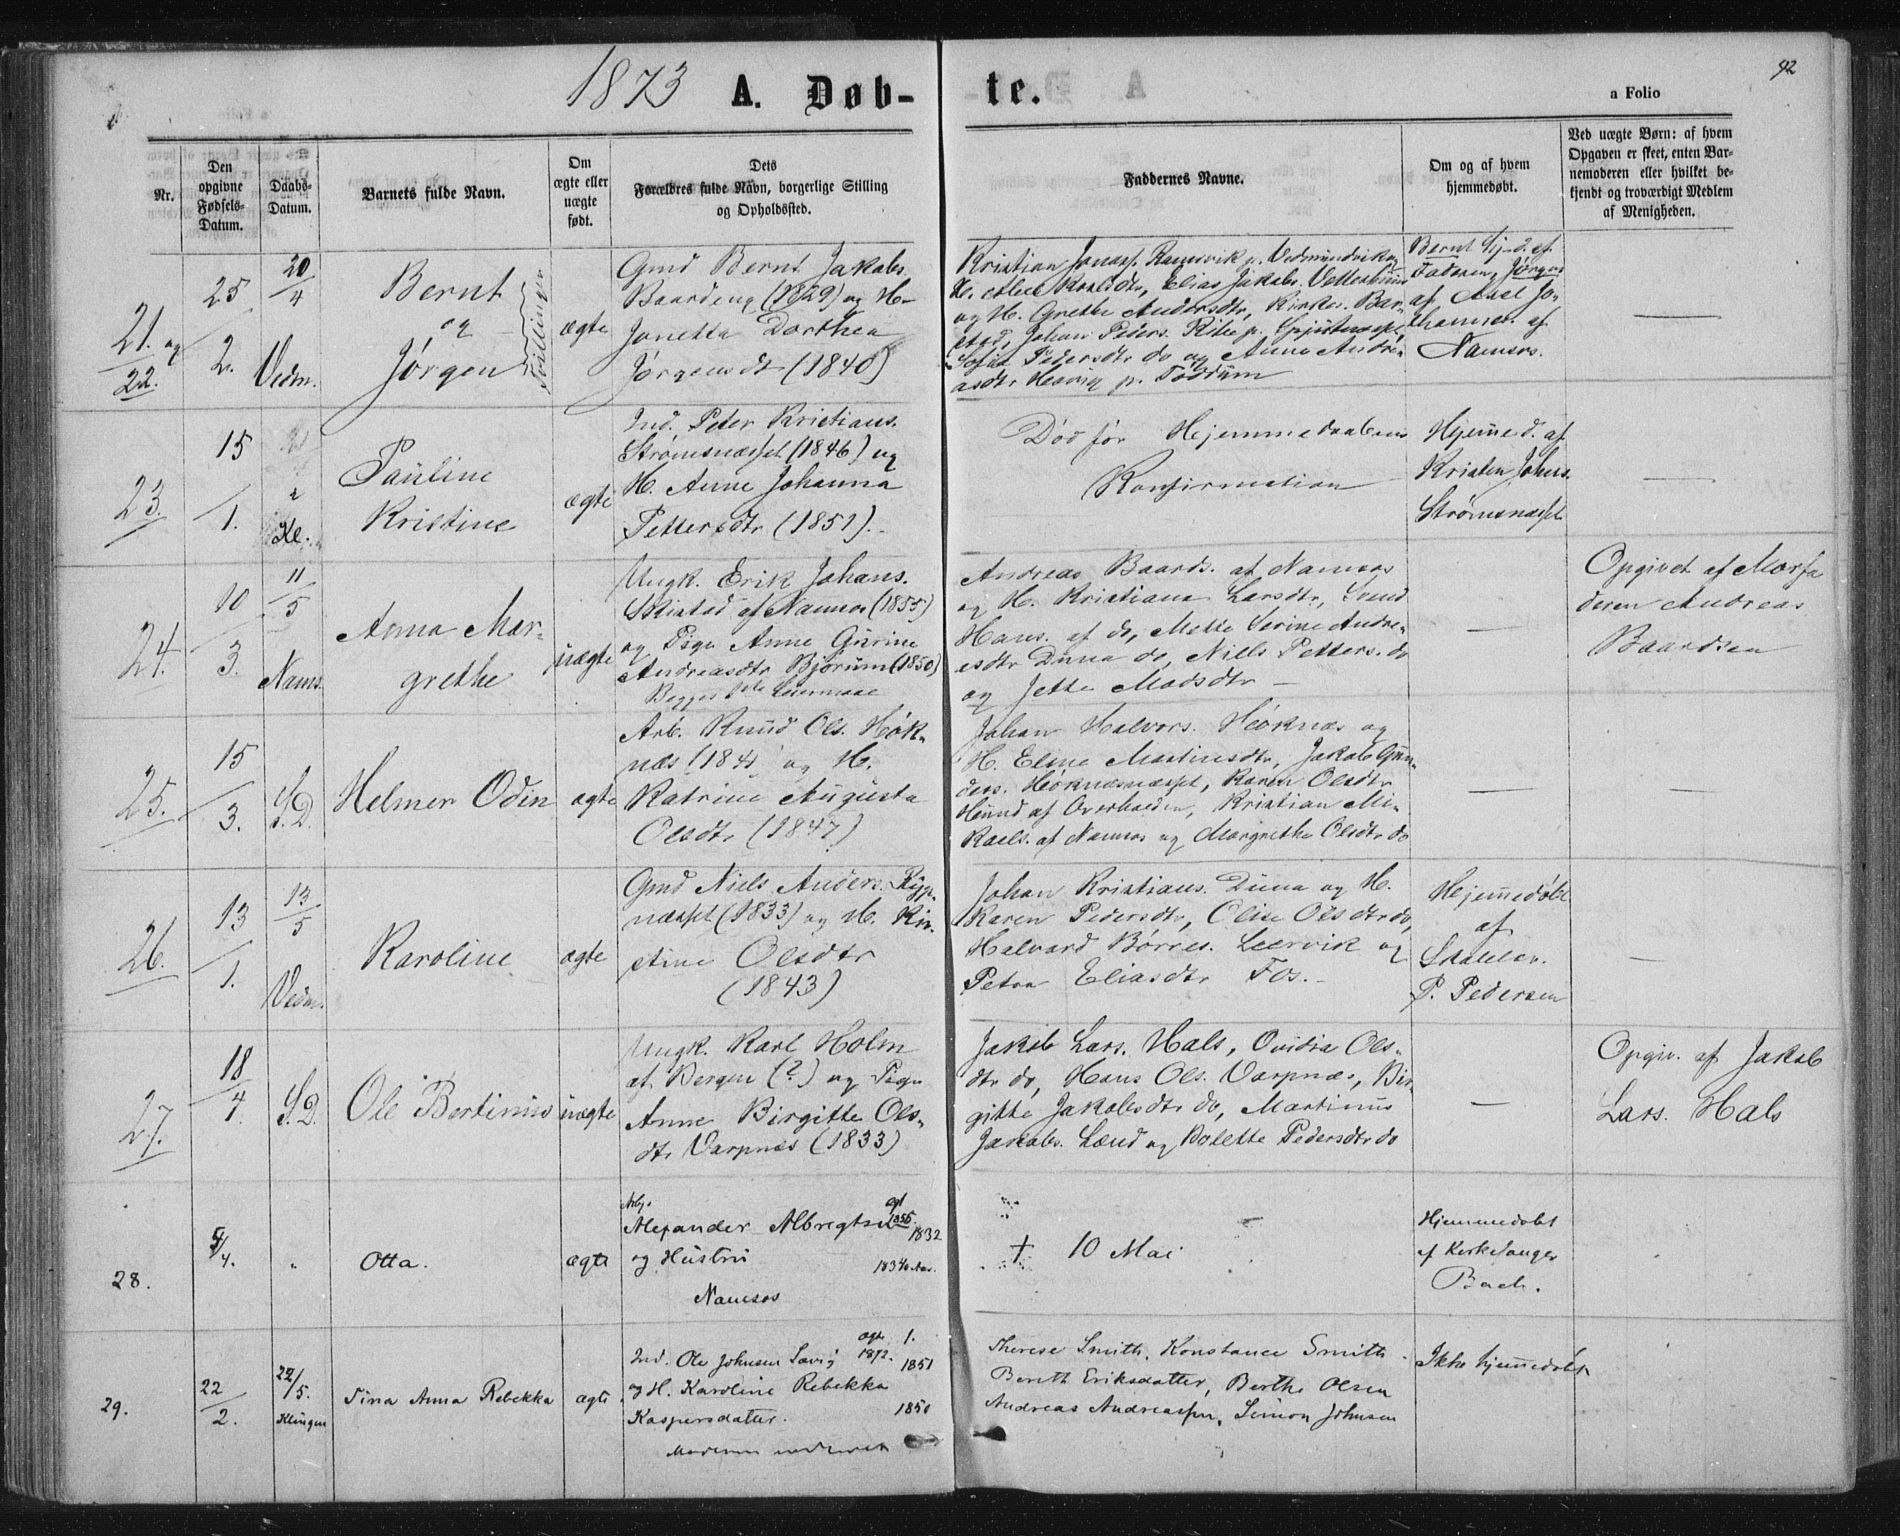 1873 A. Døb-
te.
a Folio
92
Nr.
Den opgivne Fødsels-Datum.
Daabs-Datum.
Barnets fulde Navn.
Om ægte eller uægte født.
Dets Forældres fulde Navn, borgerlige Stilling og Opholdssted.
Faddernes Navne.
Om og af hvem hjemmedøbt.
Ved uægte Børn: af hvem Opgaven er skeet, enten Barnemoderen eller hvilket bekjendt og troværdigt Medlem af Menigheden.
21. og 22.
25/2.
20/4 Vedm.
Bernt
og
Jørgen
Tvillinger
ægte
Gmd Bernt Jakobs.
Baardeng (1829) og H.
Janetta Dorthea
Jørgensdt (1840)
Kristian Jonass. Ramsvik p. Vedmundvik og
Elias Jakobs.
og H. Grethe Andersdtr,
Johan Peders.
Sofia Pedersdtr do og Anne Andre-
asdtr
Bernt hj. d. af
Faderen, Jørgen
af Axel Jo-
hannes. af
Namsos.
23.
15/1.
Kl.
Pauline
Kristine
ægte
Ind. Peter Kristians.
Strømsnæsset (1846) og
H. Anne Johanna
Pettersdtr (1851).
Død før Hjemmedaabens
Konfirmation
Hjemmed. af
Kristen Johns.
Strømsnæsset
24.
10/3.
11/5 Nams.
Anna Mar-
grethe
uægte
Ungk. Erik Johans.
af Namsos (1855)
og Pige Anne Gurine
Andreasdtr Bjørum (1850)
Begges 1ste Leiermaal
Andreas Baards. af Namsos
og H. Kristiane Larsdtr, Svend
Hans. af do, Mette Serine Andre-
esdtr Duna do, Niels Petters. do
og Jette Madsdtr –
Opgivet af Morfa
deren Andreas
Baardsen
25.
15/3.
S.D.
Helmer Odin
ægte
Arb. Knud Ols. Høk-
næs (184 og H.
Katrine Augusta
Olsdtr (1847)
Johan Halvors. Høknæs og
H. Eline Martinsdtr, Jakob Gun-
ders. Høknæsnæsset, Karen Olsdtr
Hunnd af Overhalden, Kristian Mi-
kaels. af Namsos og Margrethe Olsdtr do
26.
13/1.
13/5 Vedm.
Karoline
ægte
Gmd Niels Anders. Ryg-
næsset (1833) og H. Kir-
stine Olsdtr
(1843)
Johan Kristians. Duna og H.
Karen Pedersdtr, Olise Olsdtr do,
Halvard Børres. Leervik og
Petra Eliasdtr Fos.
Hjemmedøbt
af
Skolelær.
P. Pedersen
27.
18/4.
S.D.
Ole Bertinius
uægte
Ungk. Karl Holm
af Bergen (?) og Pige
Anne Birgitte Ols-
dtr Varpnæs (1833)
Jakob Lars. Hals, Ovidia Ols-
dtr do, Hans Ols. Varpnæs, Bir
gitte Jakobsdtr do, Martinus
Jakobs. Lund og Bolette Pedersdtr do
Opgiv. af Jakob
Lars. Hals
28.
5/4.
"
Otta.
ægte
Arb.
Alexander Albregtsen 1832
og Hustru
Namsos
† 10 Mai
Hjemmedøbt
af Kirkesanger
Bach.
29.
22/2.
22/5. Klingen
Tina Anna Rebekka
ægte
Ind. Ole Johnsen Savig 1872. 1851
og H. Karoline Rebekka
Kaspersdatter. 1850
Therese Smith, Konstance Smith
Bereth Eriksdatter, Berthe Olsen
Andreas Andreassen, Simon Johnsen
Ikke hjemmedøbt